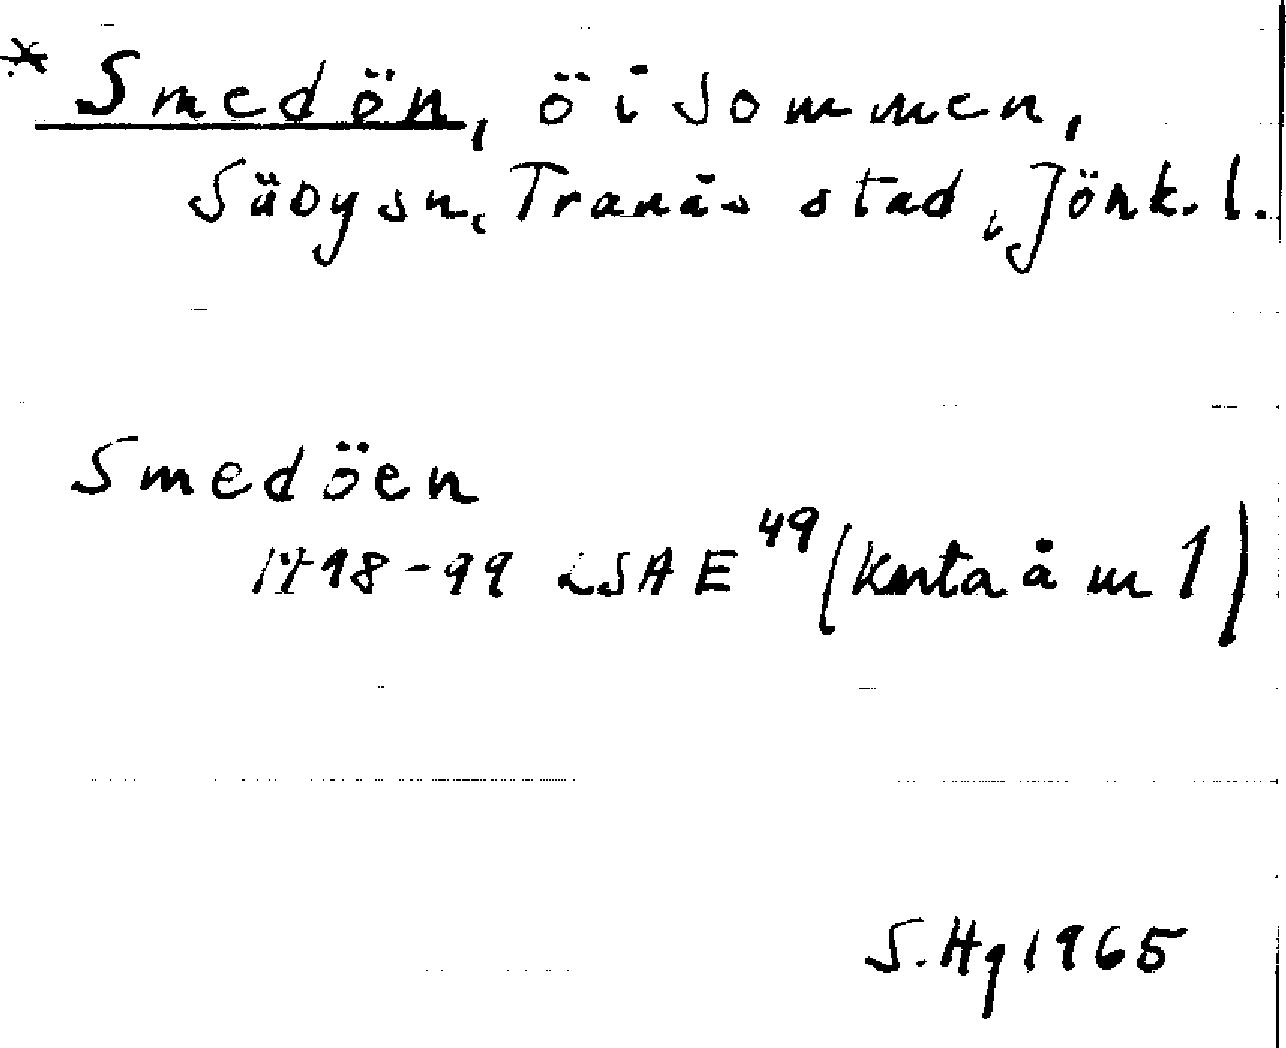 * Smedön, ö i Sommen,
Säby sn, Tranås stad, Jönk. l.
Smedöen
1798-99 LSA E 49 (Karta å nr 1)
S. Hg 1965